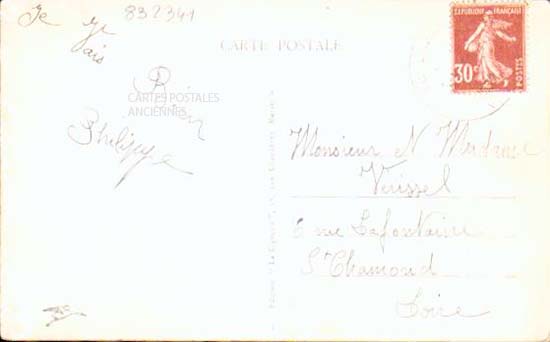 832341
Je
CARTE POSTALE
REPUBLIQUE FRANÇAISE
30c
POSTES
CARTES POSTALES
ANCIENNES
Rien
Philippe
Monsieur et Madame
Verissel
6 rue Lafontaine
St Chamond
Loire